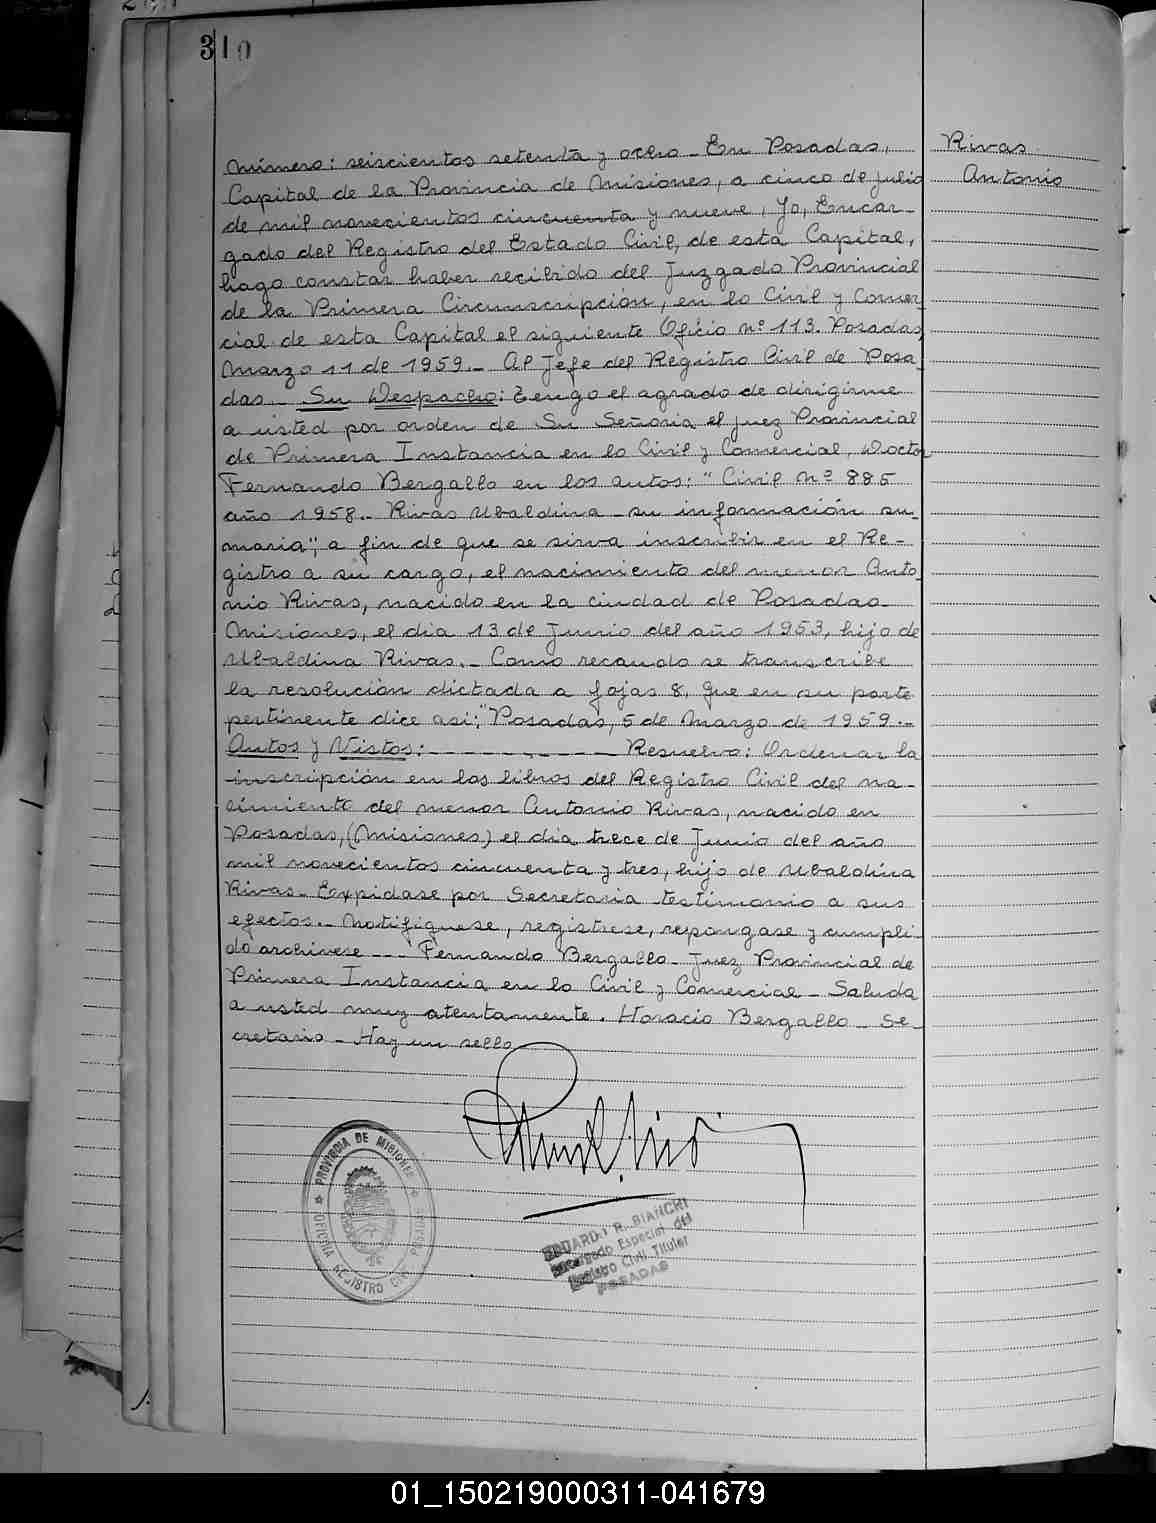 310
Rivas
Antonio
Número: seiscientos setenta y ocho - En Posadas,
Capital de la Provincia de Misiones, a cinco de julio
de mil novecientos cincuenta y nueve, Yo, Encar-
gado del Registro del Estado Civil, de esta Capital,
hago constar haber recibido del Juzgado Provincial
de la Primera Circunscripción, en lo Civil y Comer
cial de esta Capital el siguiente Oficio nº 113. Posadas,
Marzo 11 de 1959.- Al Jefe del Registro Civil de Posa-
das.- Su Despacho: Tengo el agrado de dirigirme
a usted por orden de Su Señoria el Juez Provincial
de Primera Instancia en lo Civil y Comercial, Doctor
Fernando Bergallo en los autos: "Civil Nº 885
año 1958.- Rivas Ubaldina - su información su-
maria", a fin de que se sirva inscribir en el Re-
gistro a su cargo, el nacimiento del menor Anto-
nio Rivas, nacido en la ciudad de Posadas-
Misiones, el dia 13 de Junio del año 1953, hijo de
Ubaldina Rivas.- Como recaudo se transcribe
la resolución dictada a fojas 8, que en su parte
pertinente dice asi: "Posadas, 5 de Marzo de 1959.-
Autos y Vistos: - - - - - - - - - Resuelvo: Ordenar la
inscripción en los libros del Registro Civil del na-
cimiento del menor Antonio Rivas, nacido en
Posadas, (Misiones) el dia trece de Junio del año
mil novecientos cincuenta y tres, hijo de Ubaldina
Rivas- Expidase por Secretaria testimonio a sus
efectos.- Notifiquese, registrese, repongase y cumpli-
do archivese - - - Fernando Bergallo- Juez Provincial de
Primera Instancia en lo Civil y Comercial - Saluda
a usted muy atentamente. Horacio Bergallo - Se-
cretario - Hay un sello
PROVINCIA DE MISIONES
OFICINA REGISTRO CIVIL
POSADAS
EDUARDO R. BIANCHI
Encargado Especial del
Registro Civil Titular
POSADAS
01_150219000311-041679